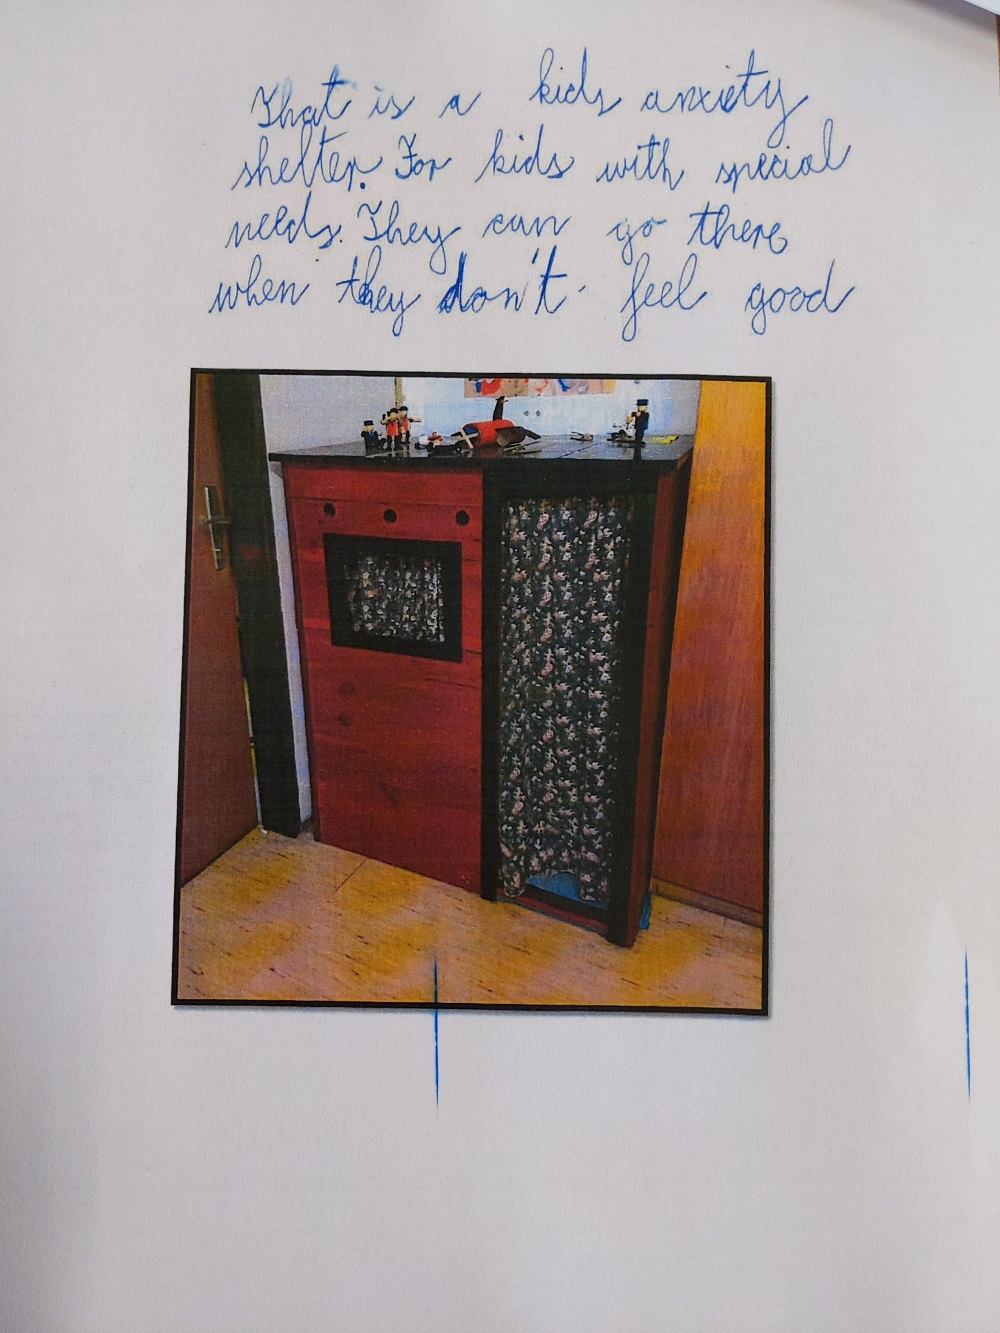 That is a kids anxiety
shelter. For kids with special
needs. They can go there
when they don't feel good